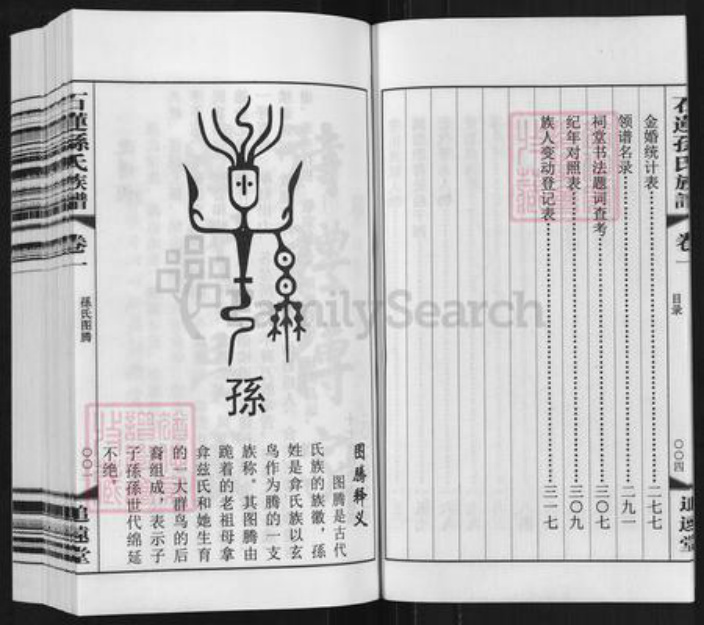 石蓮孫氏族譜
卷一
目录
〇〇四
追遠堂
金婚统计表 二七七
领谱名录 二九一
祠堂书法题词查考 三〇七
纪年对照表 三〇九
族人变动登记表 三一七
孫
图腾释义
图腾是古代
氏族的族徽，孫
姓是弇氏族以玄
鸟作为腾的一支
族称。其图腾由
跪着的老祖母拿
弇兹氏和她生育
的一大群鸟的后
裔组成，表示子
子孫孫世代绵延
不绝。
石蓮孫氏族譜
卷一
孫氏图腾
〇〇一
追遠堂
FamilySearch